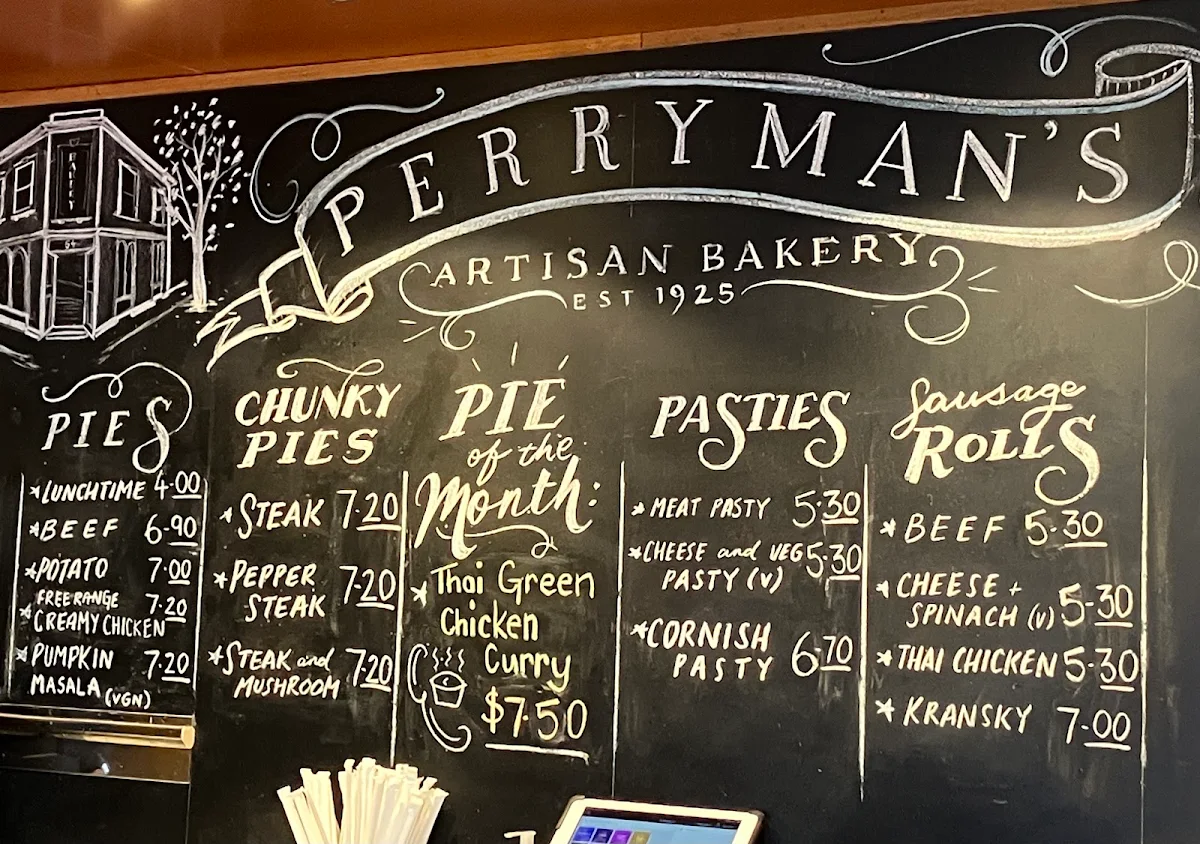 BAKERY
54
PERRYMAN'S
ARTISAN BAKERY
EST 1925
PIES
*LUNCHTIME 4.00
*BEEF 6-90
*POTATO 7.00
FREE RANGE
*CREAMY CHICKEN 7.20
*PUMPKIN
MASALA (VGN) 7.20
CHUNKY
PIES
*STEAK 7.20
*PEPPER
STEAK 7.20
*STEAK and
MUSHROOM 7.20
PIE
of the
Month:
*Thai Green
Chicken
Curry
$7.50
PASTIES
*MEAT PASTY 5.30
*CHEESE and VEG 5.30
PASTY (V)
*CORNISH
PASTY 6.70
Sausage
ROLLS
*BEEF 5.30
*CHEESE +
SPINACH (V) 5-30
*THAI CHICKEN 5.30
*KRANSKY 7.00